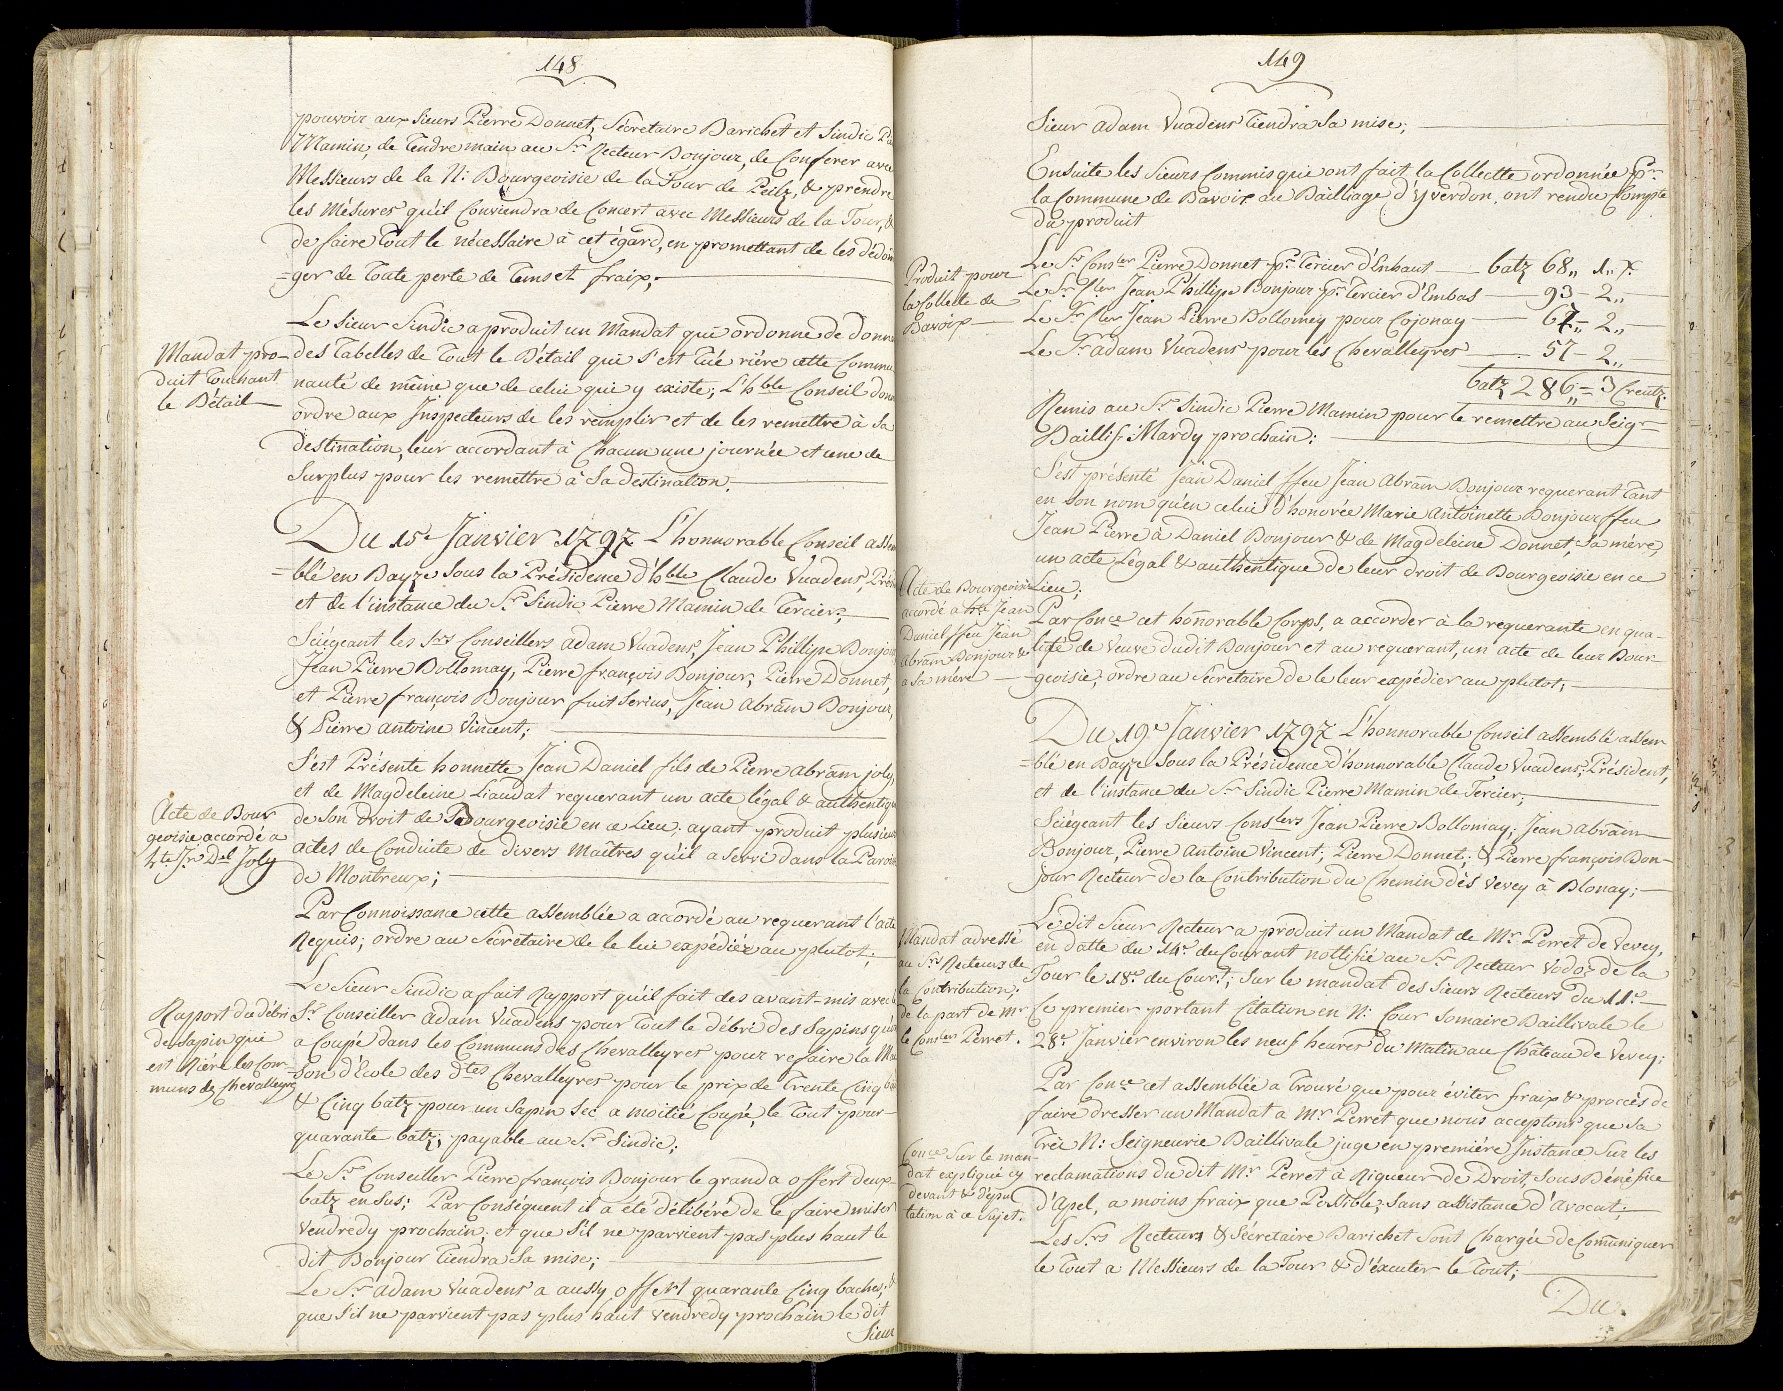 148
pouvoir aux Sieurs Pierre Donnet, Sécretaire Barichet et Sindic
Mamin, de Tendre main au Sr. Recteur Bonjour, de Conferer avec
Messieurs de la N: Bourgeoisie de la Tour de Peilz, & prendre
les Mésures qu'il Conviendra de Concert avec Messieurs de la Tour, &
de faire Tout le nécessaire à cet égard, en promettant de les dédom
=ger de Toute perte de Tems et fraix;
Mandat pro-
duit Touchant
le Bétail
Le Sieur Sindic a produit un Mandat qui ordonne de donne
des Tabelles de Tout le Bétail qui s'est Tué riére cette Commu
nauté de même que de celui qui y existe; L'hble Conseil donn
ordre aux Inspecteurs de les remplir et de les remettre à Sa
destination, leur accordant à Chacun une journée et une de
Surplus pour les remettre à Sa destination.
Du 15e. Janvier 1797 L'honnorable Conseil assem
=blé en Bayze Sous la Présidence d'hble Claude Vuadens, Prési
et de l'instance du Sr. Sindic Pierre Mamin de Tercier;
Sciégeant les Srs Conseillers Adam Vuadens, Jean Phillipe Bonjour
Jean Pierre Dollomay, Pierre françois Bonjour, Pierre Donnet,
et Pierre françois Bonjour fuit Serius, Jean Abram Bonjour,
& Pierre Antoine Vincent;
Acte de Bour
geoisie accordé a
hte Jn. Del Joly
S'est Présente honnette Jean Daniel fils de Pierre Abram joly,
et de Magdeleine Liaudat requerant un acte légal & authentique
de Son droit de Bourgeoisie en ce Lieu; ayant produit plusieurs
actes de Conduite de divers Maîtres qu'il a Servi dans la Paroisse
de Montreux;
Par Connoissance cette assemblée a accordé au requerant l'acte
Requis; ordre au Sécretaire de le lui expédier au plutot;
Rapport du débri
de Sapin qui
est Riére les Com-
muns de Chevalleyres
Le Sieur Sindic a fait Rapport qu'il fait des avant-mis avec l
Sr. Conseiller Adam Vuadens pour Tout le débri des Sapins qu'on
a Coupé dans les Communs des Chevalleyres pour refaire la Mai
son d'Ecole des dtes Chevalleyres pour le prix de Trente Cinq batz
& Cinq batz pour un Sapin Sec a moitié Coupé, le Tout pour
quarante batz; payable au Sr. Sindic;
Le Sr. Conseiller Pierre françois Bonjour le grand a offert deux
batz en Sus; Par Conséquent il a été délibéré de le faire miser
vendredy prochain; et que S'il ne parvient pas plus haut le
dit Bonjour Tiendra Sa mise;
Le Sr. Adam Vuadens a aussy offert quarante Cinq baches; &
que S'il ne parvient pas plus haut vendredy prochain le dit
Sieur
149
Sieur Adam Vuadens Tiendra Sa mise;
Ensuite les Sieurs Commis qui ont fait la Collectte ordonnée pr.
la Commune de Bavoix au Bailliage d'Yverdon, ont rendu Compte
du produit
Produit pour
la Collecte de
Bavoix
Le Sr Conser Pierre Donnet pr. Tercier d'Enhaut batz 68,, 1,, X.
Le Sr Jean Phillipe Bonjour pr. Tercier d'Embas 93 - 2,,
Le Sr Jean Pierre Dollomey pour Cojonay 67,, - 2,,
Le Sr. Adam Vuadens pour les Chevalleyres 57 - 2,,
batz 286,, = 3 Creutz.
Remis au Sr. Sindic Pierre Mamin pour le remettre au Seigr
Baillif Mardy prochain;
Acte de Bourgeoisie
accordé a hte Jean
Daniel ffeu Jean
Abram Bonjour &
a Sa mére
S'est présenté Jean Daniel ffeu Jean Abram Bonjour requerant Tant
en Son nom qu'en celui d'honorée Marie Antoinette Bonjour ffeu
Jean Pierre à Daniel Bonjour & de Magdeleine Donnet, Sa mére,
un acte Légal & authentique de leur droit de Bourgeoisie en ce
Lieu;
Par Conce cet honnorable Corps, a accorder à la requerante en qua-
lité de veuve dudit Bonjour et au requerant, un acte de leur Bour
geoisie; ordre au Secrétaire de le leur expédier au plutot;
Du 19e. Janvier 1797 L'honnorable Conseil assemblé assem
=blé en Bayze Sous la Présidence d'honnorable Claude Vuadens, Président,
et de l'instance du Sr. Sindic Pierre Mamin de Tercier;
Sciégeant les Sieurs Consters Jean Pierre Dollomay; Jean Abram
Bonjour, Pierre Antoine Vincent, Pierre Donnet; & Pierre françois Bon-
jour Recteur de la Contribution du Chemin dès Vevey à Blonay;
Mandat adressé
au Srs Recteurs de
la Contribution;
de la part de mr
le Conser Perret.
Le dit Sieur Recteur a produit un Mandat de Mr. Perret de Vevey,
en datte du 14e. du Courant nottifié au Sr. Recteur Vodoz de la
Tour le 18e. du Court; Sur le mandat des Sieurs Recteurs du 11e.
Ce premier portant Citation en N: Cour Somaire Baillivale le
28e. Janvier environ les neuf heures du Matin au Château de Vevey;
Conce Sur le man-
dat expliqué cy
devant & dépu
tation à ce Sujet.
Par Conce cet assemblée a Trouvé que pour éviter fraix & proccès de
faire dresser un Mandat a Mr. Perret que nous acceptons que Sa
Trés N: Seigneurie Baillivale juge en première Instance Sur les
reclamations du dit Mr. Perret à Rigueur de Droit, Sous Bénéfice
d'Apel, a moins fraix que Possible; Sans assistance d'Avocat;
Les Srs Recteurs & Sécretaire Barichet Sont Chargée de Comuniquer
le Tout a Messieurs de la Tour & d'éxecuter le Tout;
Du